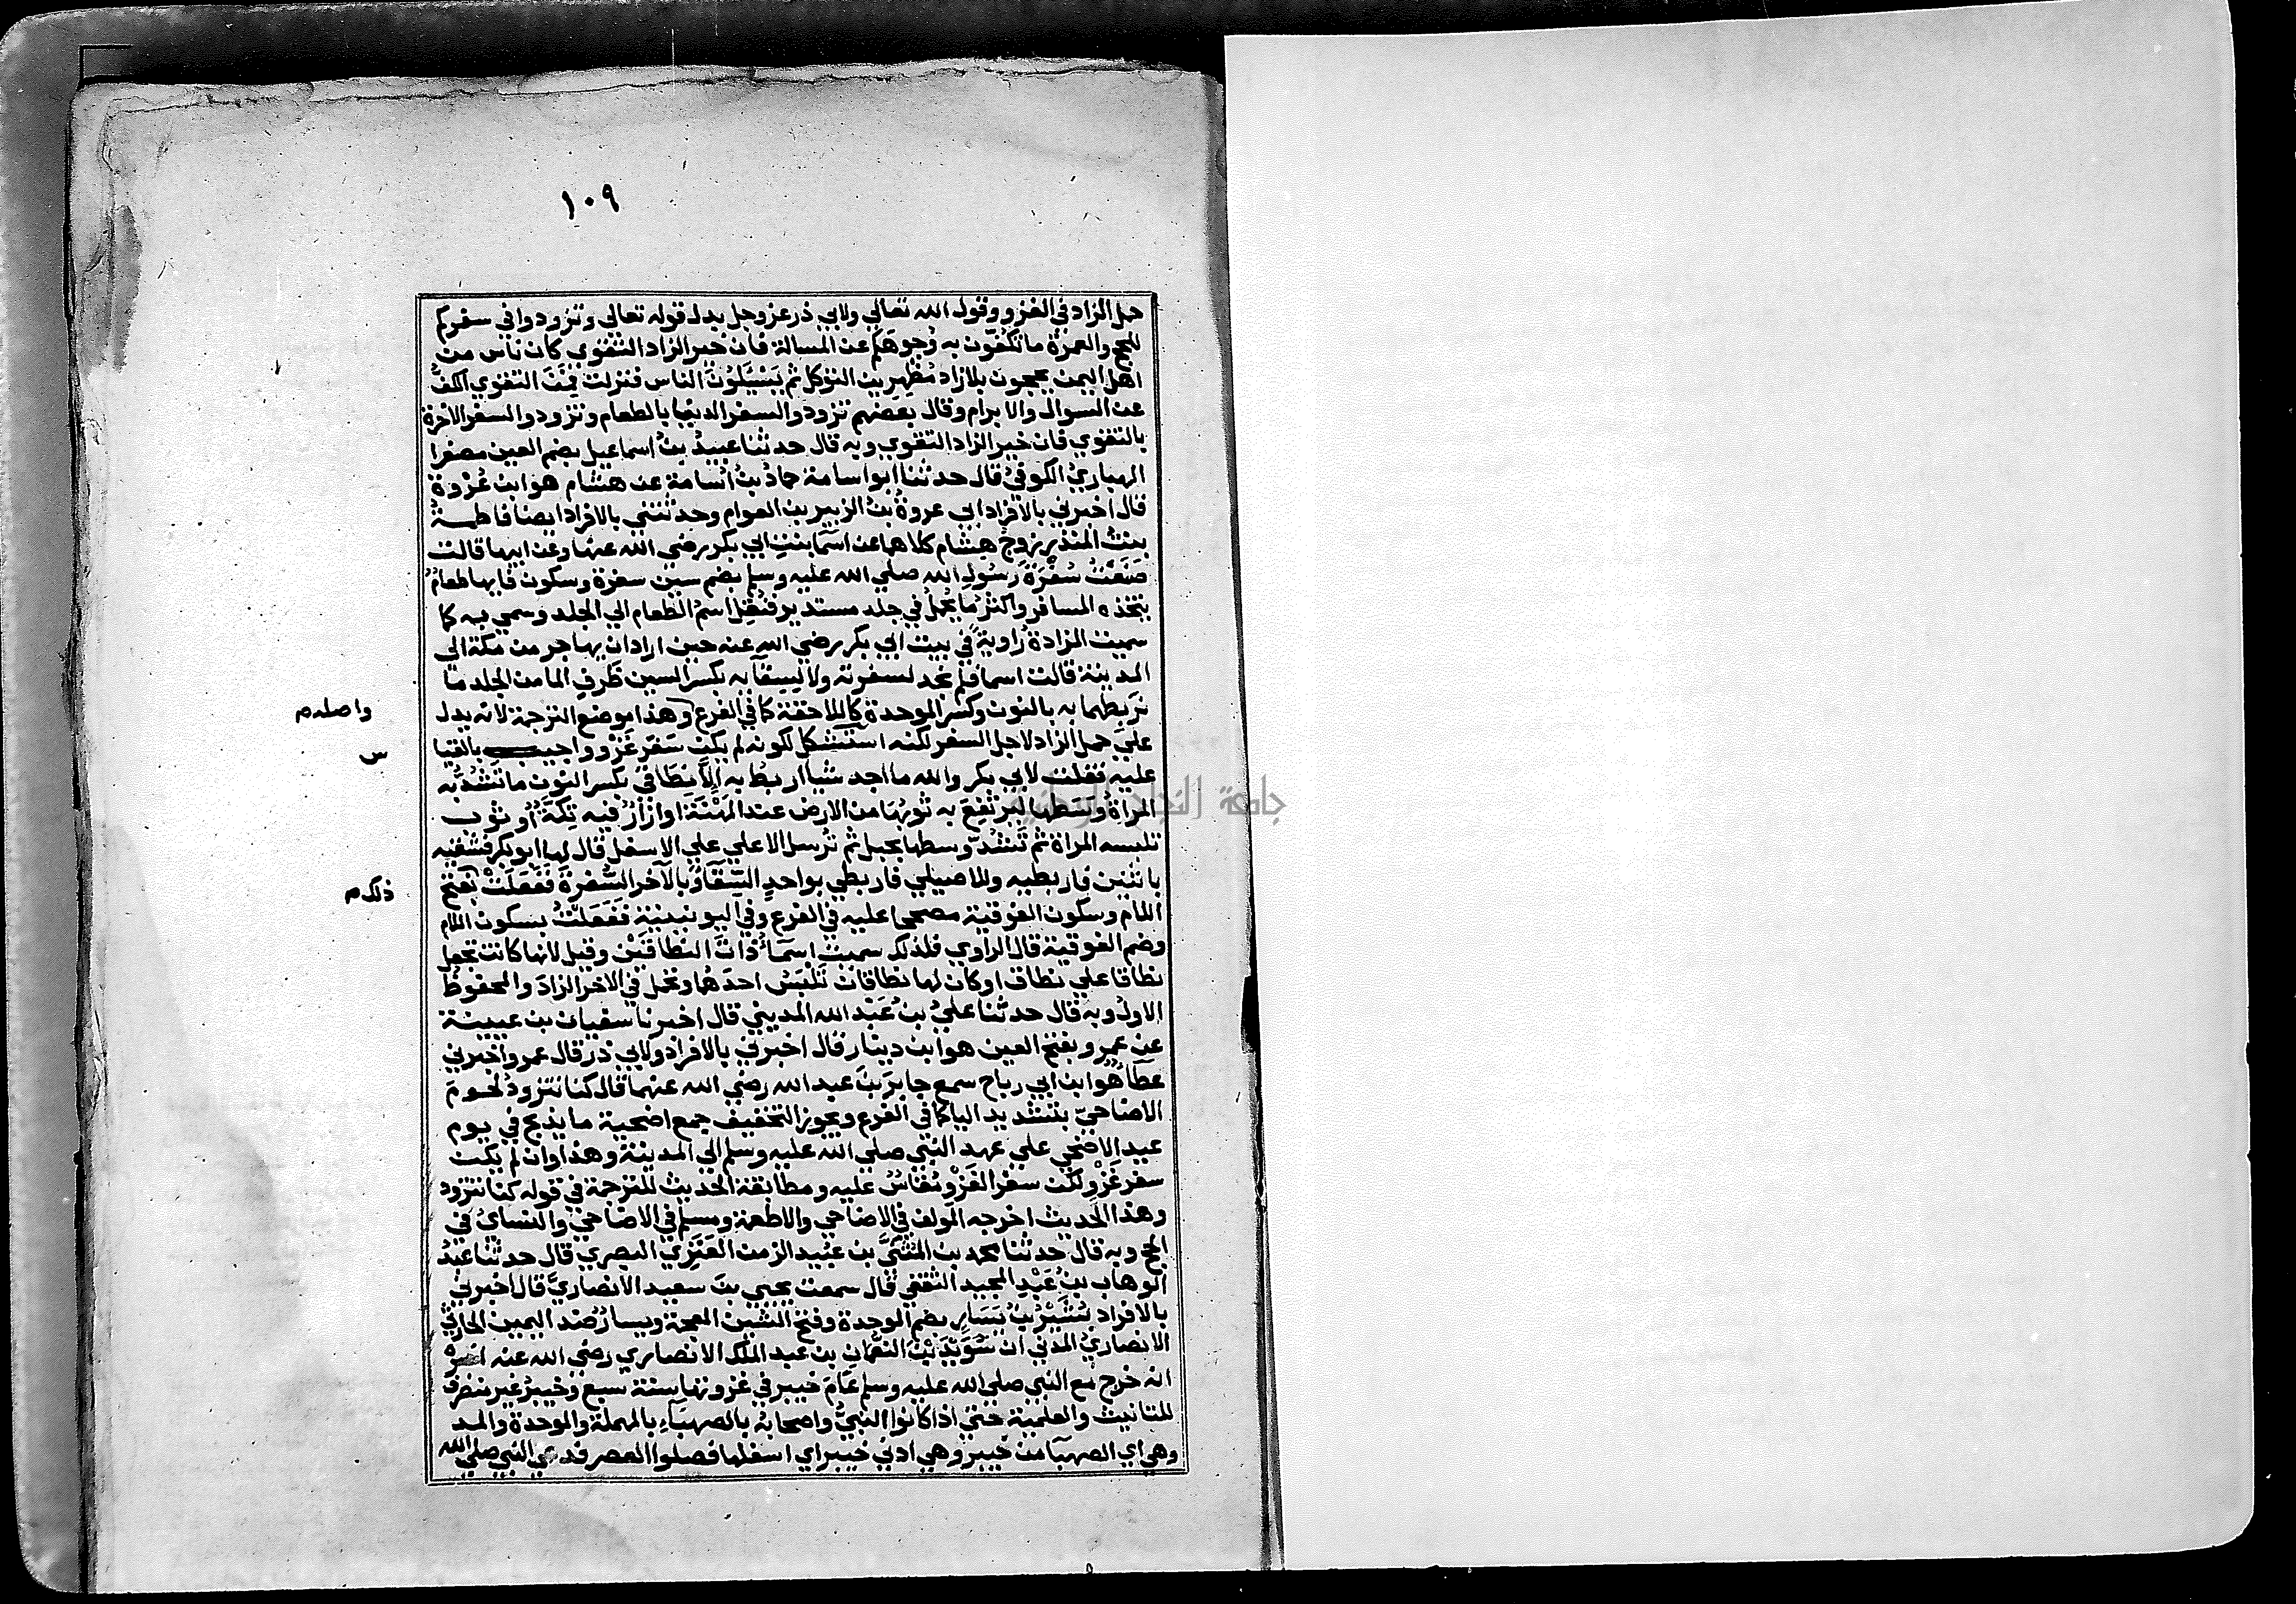 ١٠٩
حمل الزاد في الغزو وقول الله تعالي ولابي ذر عز وجل بدل قوله تعالي وتزودوا في سفركم
للحج والعمرة ما تكفون به وجوهكم عن المسالة فان خير الزاد التقوي كان ناس من
اهل اليمن يحجون بلا زاد مظهرين التوكل ثم يسئلون الناس فنزلت فمن التقوي الكف
عن السوال والابرام وقال بعضهم تزودوا لسفر الدنيا بالطعام وتزودوا لسفر الاخرة
بالتقوي فان خير الزاد التقوي وبه قال حدثنا عبيد بن اسماعيل بضم العين مصغرا
الهباري الكوفي قال حدثنا ابو اسامة حماد بن اسامة عن هشام هو ابن عروة
قال اخبرني بالافراد ابي عروة بن الزبير بن العوام وحدثتني بالافراد ايضا فاطمة
بنت المنذر زوج هشام كلاهما عن اسما بنت ابي بكر رضي الله عنها وعن ابيها قالت
صنعت سفرة رسول الله صلي الله عليه وسلم بضم سين سفرة وسكون فايها طعام
يتخذه المسافر واكثر ما يحمل في جلد مستدير فنقل اسم الطعام الي الجلد وسمي به كما
سميت المزادة راوية في بيت ابي بكر رضي الله عنه حين اراد ان يهاجر من مكة الي
المدينة قالت اسما فلم نجد لسفرته ولا لسقآيه بكسر السين ظرف الما من الجلد ما
نربطهما به بالنون وكسر الموحدة كاللاحقة كما في الفرع وهذا موضع الترجمة لانه يدل
واصلهم
علي حمل الزاد لاجل السفر لكنه استشكل لكونه لم يكن سفر غزو واجيب بالقيا
س
عليه فقلت لابي بكر والله ما اجد شيا اربط به الا نطاقي بكسر النون ما تشد به
المراة وسطها ليرتفع به ثوبها من الارض عند المهنة او ازار فيه تكة او ثوب
تلبسه المراة ثم تشد وسطها بحبل ثم ترسل الاعلي علي الاسفل قال لها ابو بكر فشقيه
باثنين فاربطيه وللاصيلي فاربطي بواحد السقاء وبالآخر السفرة ففعلت بفتح
ذلك م
اللام وسكون الفوقية مصححا عليه في الفرع وفي اليونينية ففعلت بسكون اللام
وضم الفوقية قال الراوي فلذلك سميت اسماء ذات النطاقين وقيل لانها كانت تجعل
نطاقا علي نطاق او كان لها نطاقان تلبس احدهما وتحمل في الاخر الزاد والمحفوظ
الاول وبه قال حدثنا علي بن عبد الله المديني قال اخبرنا سفيان بن عيينة
عن عمرو بفتح العين هو ابن دينار قال اخبرني بالافراد ولابي ذر قال عمرو اخبرني
عطآ هو ابن ابي رباح سمع جابر بن عبد الله رضي الله عنهما قال كنا نتزود لحوم
الاضاحي بتشديد اليا كما في الفرع ويجوز التخفيف جمع اضحية ما يذبح في يوم
عيد الاضحي علي عهد النبي صلي الله عليه وسلم الي المدينة وهذا وان لم يكن
سفر غزو لكن سفر الغزو مقاس عليه ومطابقة الحديث للترجمة في قوله كنا نتزود
وهذا الحديث اخرجه المولف في الاضاحي والاطعمة ومسلم في الاضاحي والنساي في
الحج وبه قال حدثنا محمد بن المثني بن عبيد الزمن العنزي البصري قال حدثنا عبد
الوهاب بن عبد المجيد الثقفي قال سمعت يحيي بن سعيد الانصاري قال اخبرني
بالافراد بشير بن يسار بضم الموحدة وفتح الشين المعجمة ويسار ضد اليمين الحارثي
الانصاري المدني ان سويد بن النعمان بن عبد الملك الانصاري رضي الله عنه اخبره
انه خرج مع النبي صلي الله عليه وسلم عام خيبر في غزوتها سنة سبع وخيبر غير منصرف
للتانيث والعلمية حتي اذا كانوا النبي واصحابه بالصهباء بالمهملة والموحدة والمد
وهي اي الصهبآ من خيبر وهي ادني خيبر اي اسفلها فصلوا العصر فدعي النبي صلي الله
جامعة النجاح الوطنية